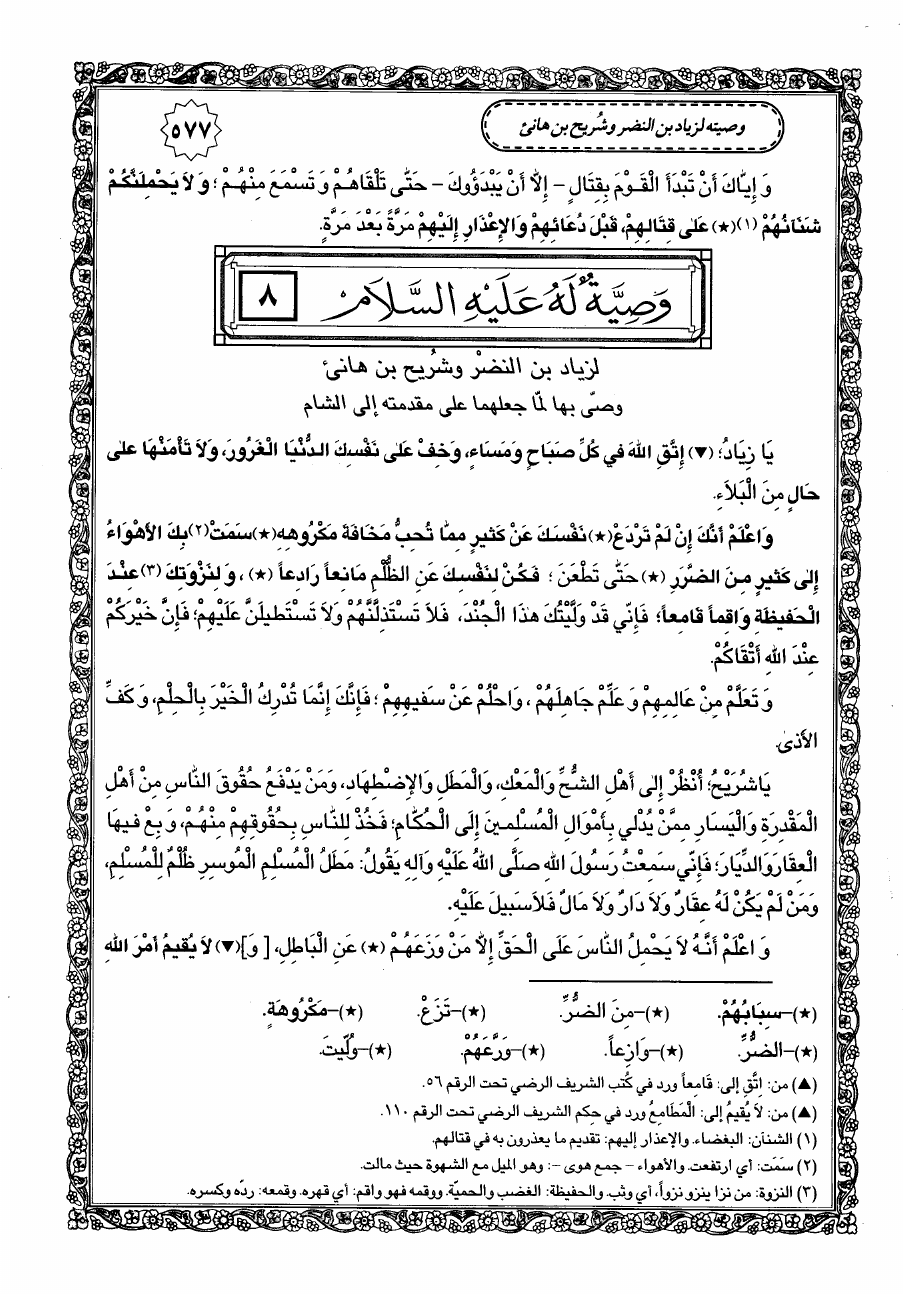 وصيته لزياد بن النضر وشُريح بن هانئ
٥٧٧
وَ إِيَّاكَ أَنْ تَبْدَأَ الْقَوْمَ بِقِتَالٍ - إِلاَّ أَنْ يَبْدَؤُوكَ - حَتّٰى تَلْقَاهُمْ وَ تَسْمَعَ مِنْهُمْ ؛ وَ لاَ يَحْمِلَنَّكُمْ
شَنَآنُهُمْ (١)(★) عَلىٰ قِتَالِهِمْ، قَبْلَ دُعَائِهِمْ وَالإِعْذَارِ إِلَيْهِمْ مَرَّةً بَعْدَ مَرَّةٍ.
وَصِيَّةٌ لَهُ عَلَيْهِ السَّلَامُ
٨
لزياد بن النضرْ وشُريح بن هانئ
وصّى بها لمّا جعلهما على مقدمته إلى الشام
يَا زِيَادُ؛ (▼) إِتَّقِ اللهَ في كُلِّ صَبَاحٍ وَمَسَاءٍ، وَخِفْ عَلىٰ نَفْسِكَ الدُّنْيَا الْغَرُورَ، وَلاَ تَأْمَنْهَا عَلىٰ
حَالٍ مِنَ الْبَلاَءِ.
وَاعْلَمْ أَنَّكَ إِنْ لَمْ تَرْدَعْ(★) نَفْسَكَ عَنْ كَثيرٍ مِمَّا تُحِبُّ مَخَافَةَ مَكْرُوهِهِ(★) سَمَتْ(٢) بِكَ الأَهْوَاءُ
إِلىٰ كَثيرٍ مِنَ الضَّرَرِ (★) حَتّٰى تَطْعَنَ ؛ فَكُنْ لِنَفْسِكَ عَنِ الظُّلْمِ مَانِعاً رَادِعاً (★) ، وَ لِنَزْوَتِكَ (٣) عِنْدَ
الْحَفيظَةِ وَاقِماً قَامِعاً؛ فَإِنّي قَدْ وَلَّيْتُكَ هٰذَا الْجُنْدَ، فَلاَ تَسْتَذِلَّنَّهُمْ وَلاَ تَسْتَطيلَنَّ عَلَيْهِمْ؛ فَإِنَّ خَيْرَكُمْ
عِنْدَ اللهِ أَتْقَاكُمْ.
وَ تَعَلَّمْ مِنْ عَالِمِهِمْ وَ عَلِّمْ جَاهِلَهُمْ ، وَاحْلُمْ عَنْ سَفيهِهِمْ ؛ فَإِنَّكَ إِنَّمَا تُدْرِكُ الْخَيْرَ بِالْحِلْمِ، وَ كَفِّ
الأَذىٰ.
يَاشُرَيْحُ؛ أُنْظُرْ إِلىٰ أَهْلِ الشُّحِّ وَالْمَعْكِ، وَالْمَطَلِ وَالإِضْطِهَادِ، وَمَنْ يَدْفَعُ حُقُوقَ النَّاسِ مِنْ أَهْلِ
الْمَقْدِرَةِ وَالْيَسَارِ مِمَّنْ يُدْلي بِأَمْوَالِ الْمُسْلِمينَ إِلَى الْحُكَّامِ؛ فَخُذْ لِلنَّاسِ بِحُقُوقِهِمْ مِنْهُمْ، وَ بِعْ فيهَا
الْعِقَارَ وَالدِّيَارَ؛ فَإِنّي سَمِعْتُ رَسُولَ اللهِ صَلَّى اللهُ عَلَيْهِ وَآلِهِ يَقُولُ: مَطَلُ الْمُسْلِمِ الْمُوسِرِ ظُلْمٌ لِلْمُسْلِمِ،
وَمَنْ لَمْ يَكُنْ لَهُ عِقَارٌ وَلاَ دَارٌ وَلاَ مَالٌ فَلاَ سَبيلَ عَلَيْهِ.
وَ اعْلَمْ أَنَّهُ لاَ يَحْمِلُ النَّاسَ عَلَى الْحَقِّ إِلاَّ مَنْ وَزَعَهُمْ (★) عَنِ الْبَاطِلِ، [ وَ](▼) لاَ يُقيمُ أَمْرَ اللهِ
(★)-سِبَابُهُمْ. (★)-مِنَ الضُّرِّ. (★)-تَزَعْ. (★)-مَكْرُوهَةٍ.
(★)-الضُّرِّ. (★)-وَازِعاً. (★)-وَرَّعَهُمْ. (★)-وُلّيتَ.
(▲) من: اتَّقِ إلى: قَامِعاً ورد في كُتب الشريف الرضي تحت الرقم ٥٦.
(▲) من: لاَ يُقيمُ إلى: الْمَطَامِعُ ورد في حِكم الشريف الرضي تحت الرقم ١١٠.
(١) الشنآن: البغضاء. والإعذار إليهم: تقديم ما يعذرون به في قتالهم.
(٢) سمَت: أي ارتفعت. والأهواء - جمع هوى -: وهو الميل مع الشهوة حيث مالت.
(٣) النزوة: من نزا ينزو نزواً، أي وثب. والحفيظة: الغضب والحميّة. ووقمه فهو واقم: أي قهره. وقمعه: ردّه وكسره.